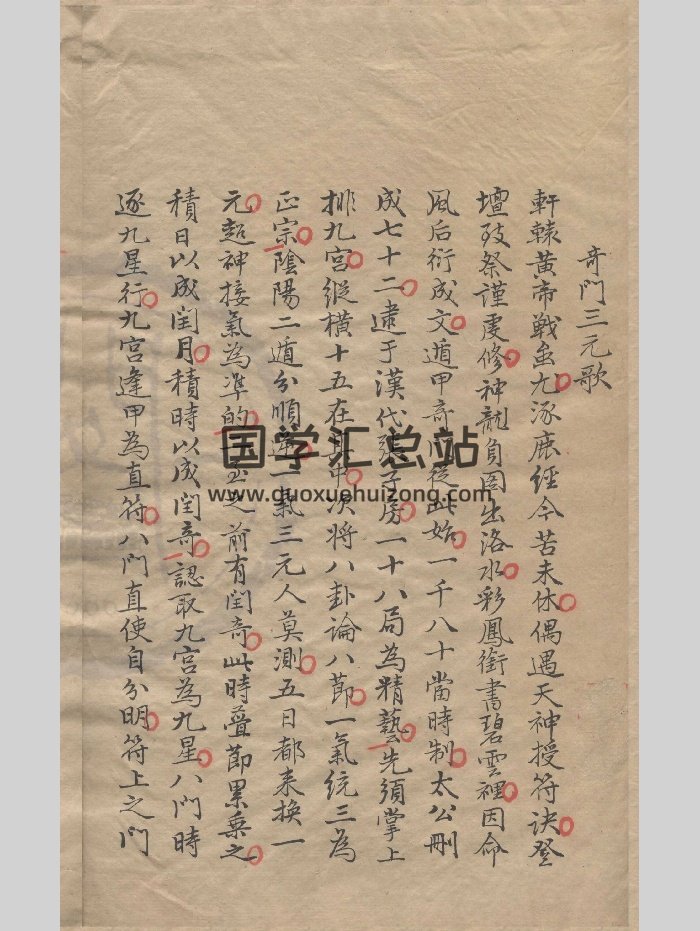 奇門三元歌
軒轅黃帝戰蚩尤涿鹿經今苦未休偶遇天神授符訣登
壇致祭謹虔修神龍負圖出洛水彩鳳銜書碧雲裡因命
風后衍成文遁甲奇門從此始一千八十當時制太公刪
成七十二逮于漢代張子房一十八局為精藝先須掌上
排九宮縱橫十五在其中次將八卦論八節一氣統三為
正宗陰陽二遁分順逆一氣三元人莫測五日都來換一
元超神接氣為準的至之前有閏奇此時疊節累乘之
積日以成閏月積時以成閏奇認取九宮為九星八門時
逐九星行九宮逢甲為直符八門直使自分明符上之門
国学汇总站
www.guoxuehuizong.com